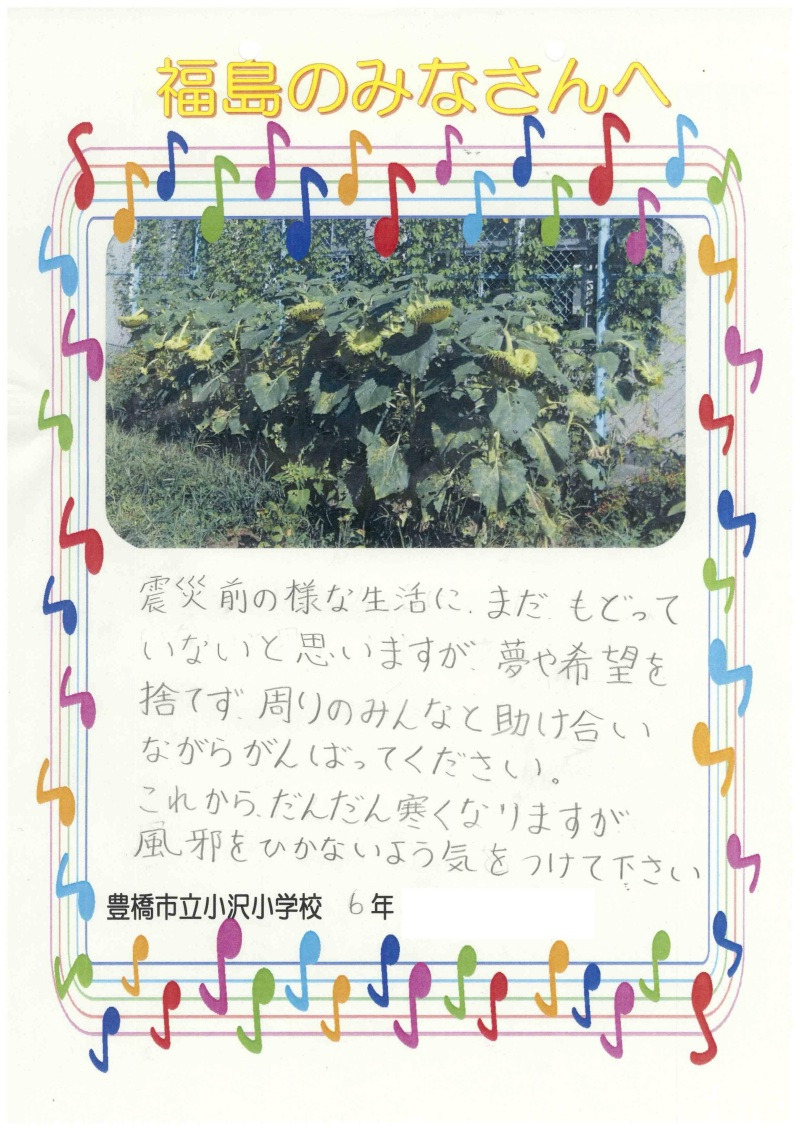 福島のみなさんへ
震災前の様な生活に、まだ、もどって
いないと思いますが、夢や希望を
捨てず、周りのみんなと助け合い
ながらがんばってください。
これから、だんだん寒くなりますが
風邪をひかないよう気をつけて下さい
豊橋市立小沢小学校 6年